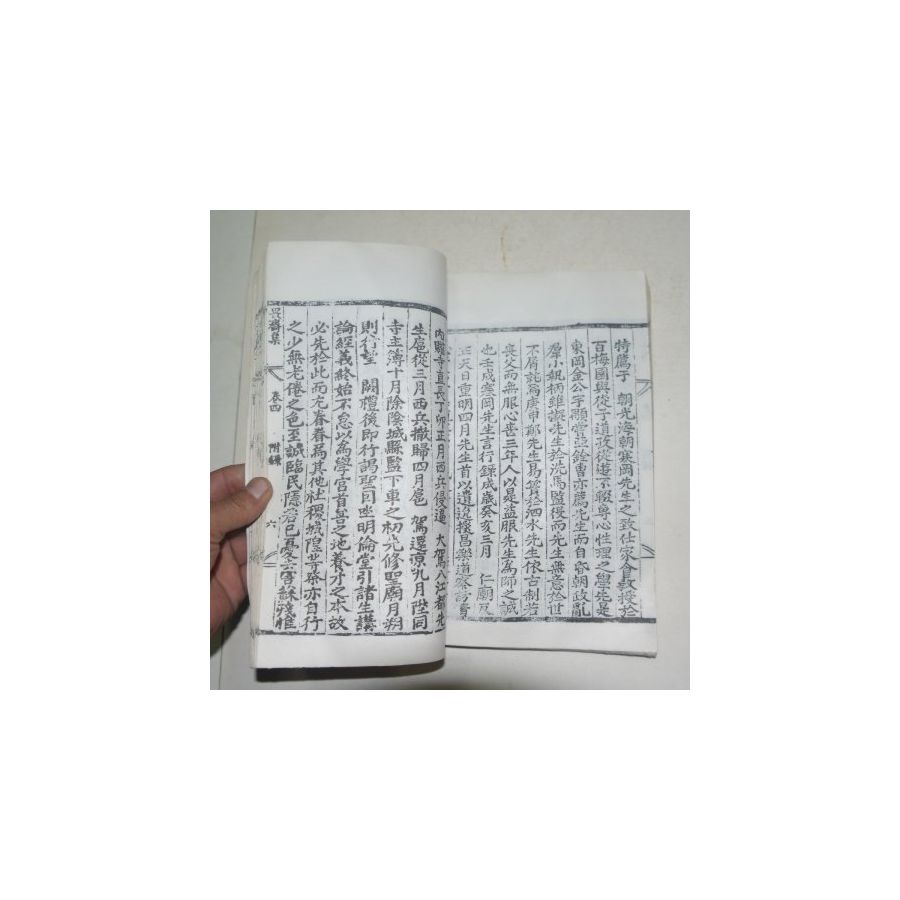 特薦于 朝光海朝寒岡先生之致仕家食教授於
百梅園與從子道孜從遊不輟專心性理之學先是
東岡金公宇顒當亞銓曹亦薦先生而自昏朝政亂
羣小執柄雖擬先生於洗馬監役而先生無意於世
不屑就焉庚申鄭先生易簀泗水先生依古制若
喪父而無服心喪三年人以是益服先生為師之誠
也壬戌寒岡先生言行錄成歲癸亥三月 仁廟反
正天日重明四月先生首以遺逸擢昌樂道察訪
內贍寺直長丁卯正月西兵侵逼 大駕入江都先
生扈從三月西兵撤歸四月扈 駕還京九月陞同
寺主簿十月除陰城縣監下車之初先修聖廟月朔
則行望 闕禮後即行謁聖因坐明倫堂引諸生講
論經義終始不怠以為學官首善之地養才之本故
必先於此而尤眷眷焉其他社稷城隍等祭亦自行
之少無老倦之色至誠臨民隱若己憂
畏齋集 卷四 附錄 六